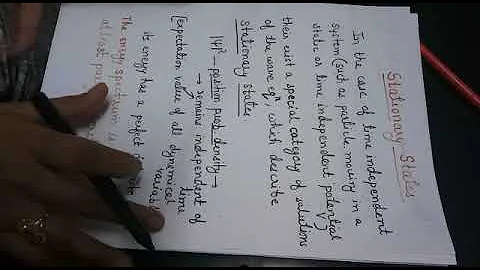 Stationary States
In the case of time independent
system (such as particle moving in a
static or time independent potential
V)
then exist a special category of solutions
of the wave eqn which describe
stationary states
|Ψ|² – position prob. density →
→ remains independent of
time
[expectation value of all dynamical
variable
its energy has a perfect
The energy spectrum is
at least